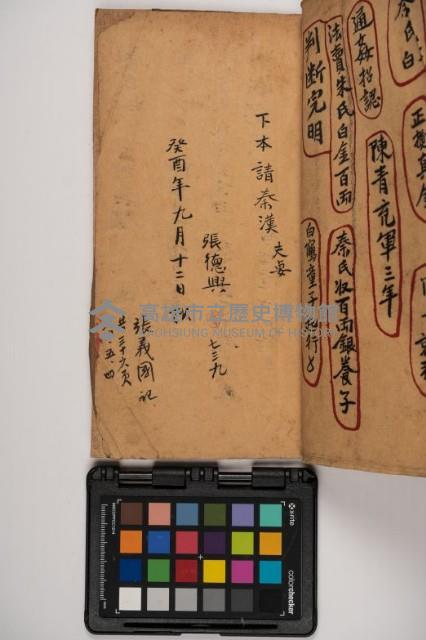 秦氏白
正撫與
陳青充軍三年
通姦招認
法賣朱氏白金百両
秦氏收百両銀養子
判斷完明
下本請秦漢夫妻
張德興
七三九
癸酉年九月十二日
張義國記
共三十六页
五.四
高雄市立歷史博物館
KAOHSIUNG MUSEUM OF HISTORY
x-rite
colorchecker